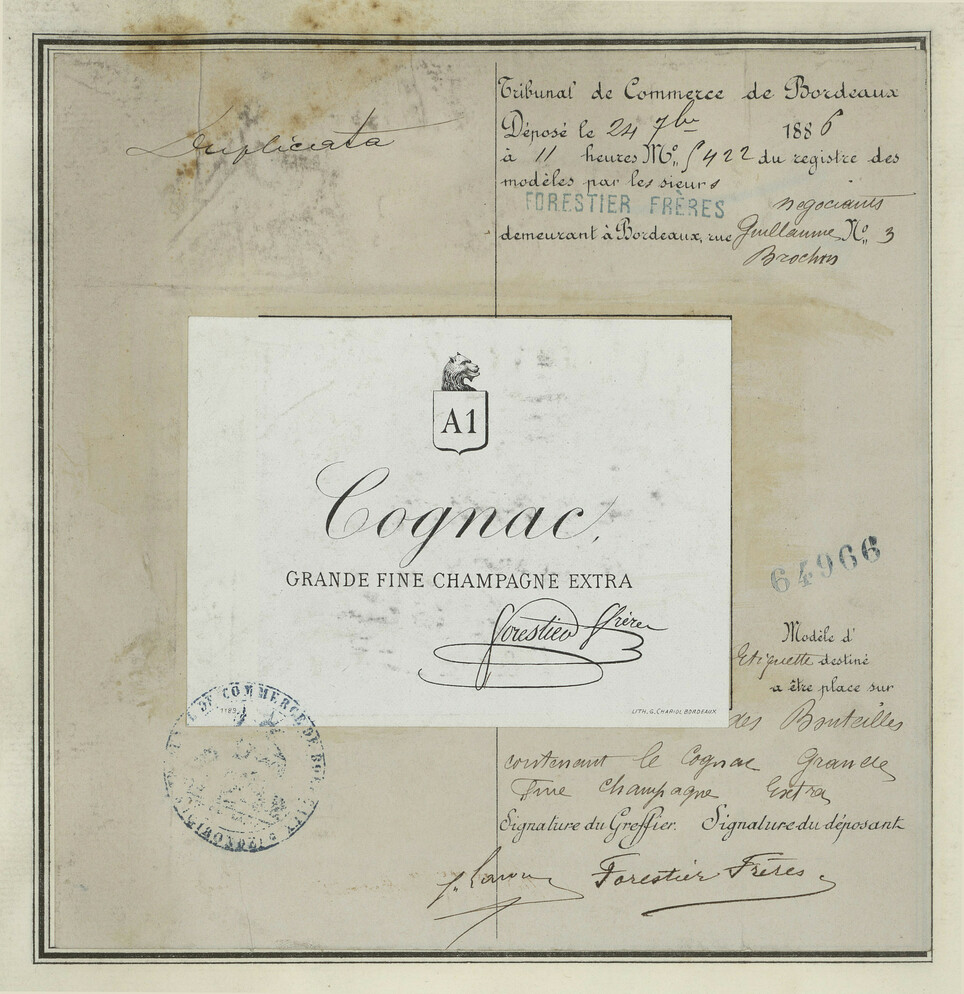 Duplicata
Tribunal de Commerce de Bordeaux
Déposé le 24 7bre 1886
à 11 heures No. 5422 du registre des
modèles par les sieurs
FORESTIER FRÈRES negociants
demeurant à Bordeaux, rue Guillaume No. 3
Brochon
A1
Cognac.
GRANDE FINE CHAMPAGNE EXTRA
Forestier Frères
LITH. G. CHARIOL BORDEAUX
64966
Modèle d'
Etiquette destiné
a être place sur
des Bouteilles
contenant le Cognac Grande
Fine Champagne Extra
Signature du Greffier. Signature du déposant
Forestier Frères
DE COMMERCE DE
GIRONDE